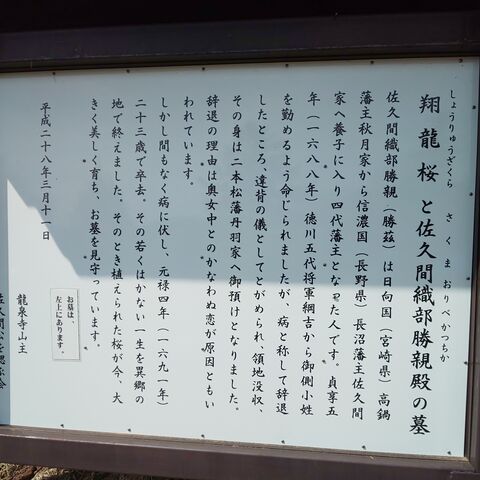 しょうりゅうざくら さくまおりべかつちか
翔龍桜と佐久間織部勝親殿の墓
佐久間織部勝親（勝茲）は日向国（宮崎県）高鍋
藩主秋月家から信濃国（長野県）長沼藩主佐久間
家へ養子に入り四代藩主となった人です。貞享五
年（一六八八年）徳川五代将軍綱吉から御側小姓
を勤めるよう命じられましたが、病と称して辞退
したところ、違背の儀としてとがめられ、領地没収、
その身は二本松藩丹羽家へ御預けとなりました。
辞退の理由は奥女中とのかなわぬ恋が原因ともい
われています。
しかし間もなく病に伏し、元禄四年（一六九一年）
二十三歳で卒去。その若くはかない一生を異郷の
地で終えました。そのとき植えられた桜が今、大
きく美しく育ち、お墓を見守っています。
お墓は、
左上にあります。
平成二十八年三月十一日
龍泉寺山主
佐久間公を偲ぶ会